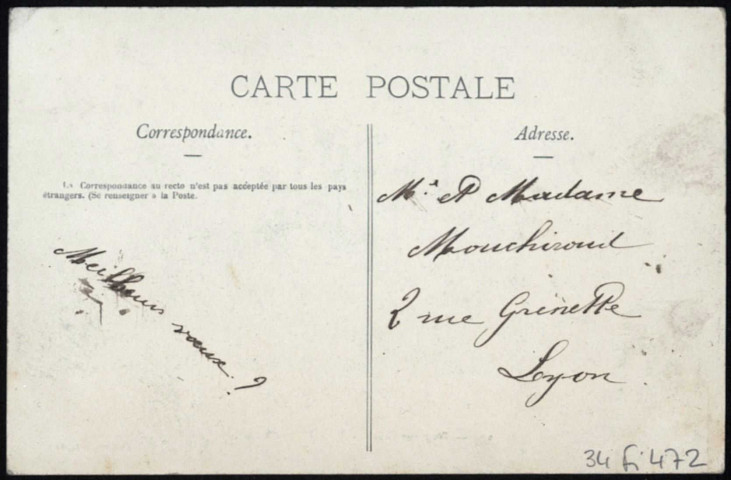 CARTE POSTALE
Correspondance.
La Correspondance au recto n'est pas acceptée par tous les pays
étrangers. (Se renseigner à la Poste.
Meilleurs vœux
Adresse.
Mr et Madame
Mouchiroud
2 rue Grenette
Lyon
34 fi 472